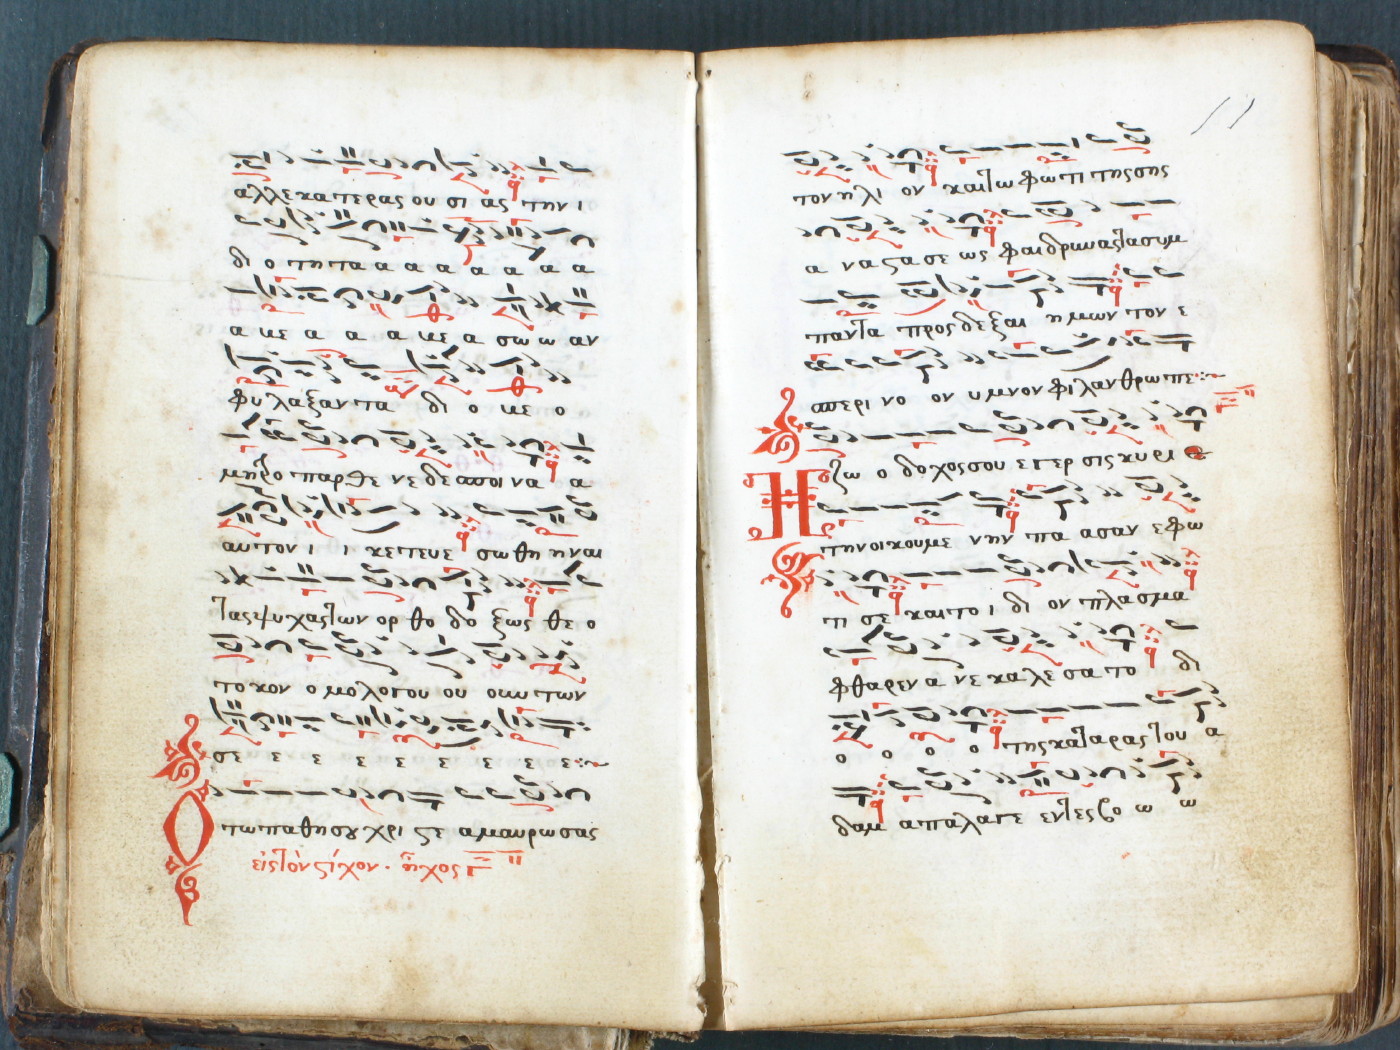 αλλ εκατερας ου σι ας την ι
δι ο τητα α α α α α α α
α με α α α με α σω ω αν
φυ λαξαντα δι ο με ο
μητρο παρθε νε δεσποι να α
αυτον ι ι κετευε σωθη η ναι
τας ψυχας των ορ θο δο ξως θε ο
το κον ο μολογου ου ουν των
σε ε ε ε ε ε ε ε ε
Ο τω παθη σου χρι στε αμαυρωσας
εις τον στίχον · ἦχος
11
τον η λι ον και τω φωτι της σης
α να στα σε ως φαιδρυνας τα συμ
παντα προσδεξαι ημων τον ε
σπερι νο ον υμνον φιλανθρωπε
Η ζω ο δοχος σου εγερσις κυρι ε
την οικουμε νην πα ασαν εφω
τι σε και το ι δι ον πλασμα
φθαρεν α νε καλε σα το δι
ο ο ο ο της κα ταρας του α
δαμ απαλαγε εντες βο ω ω